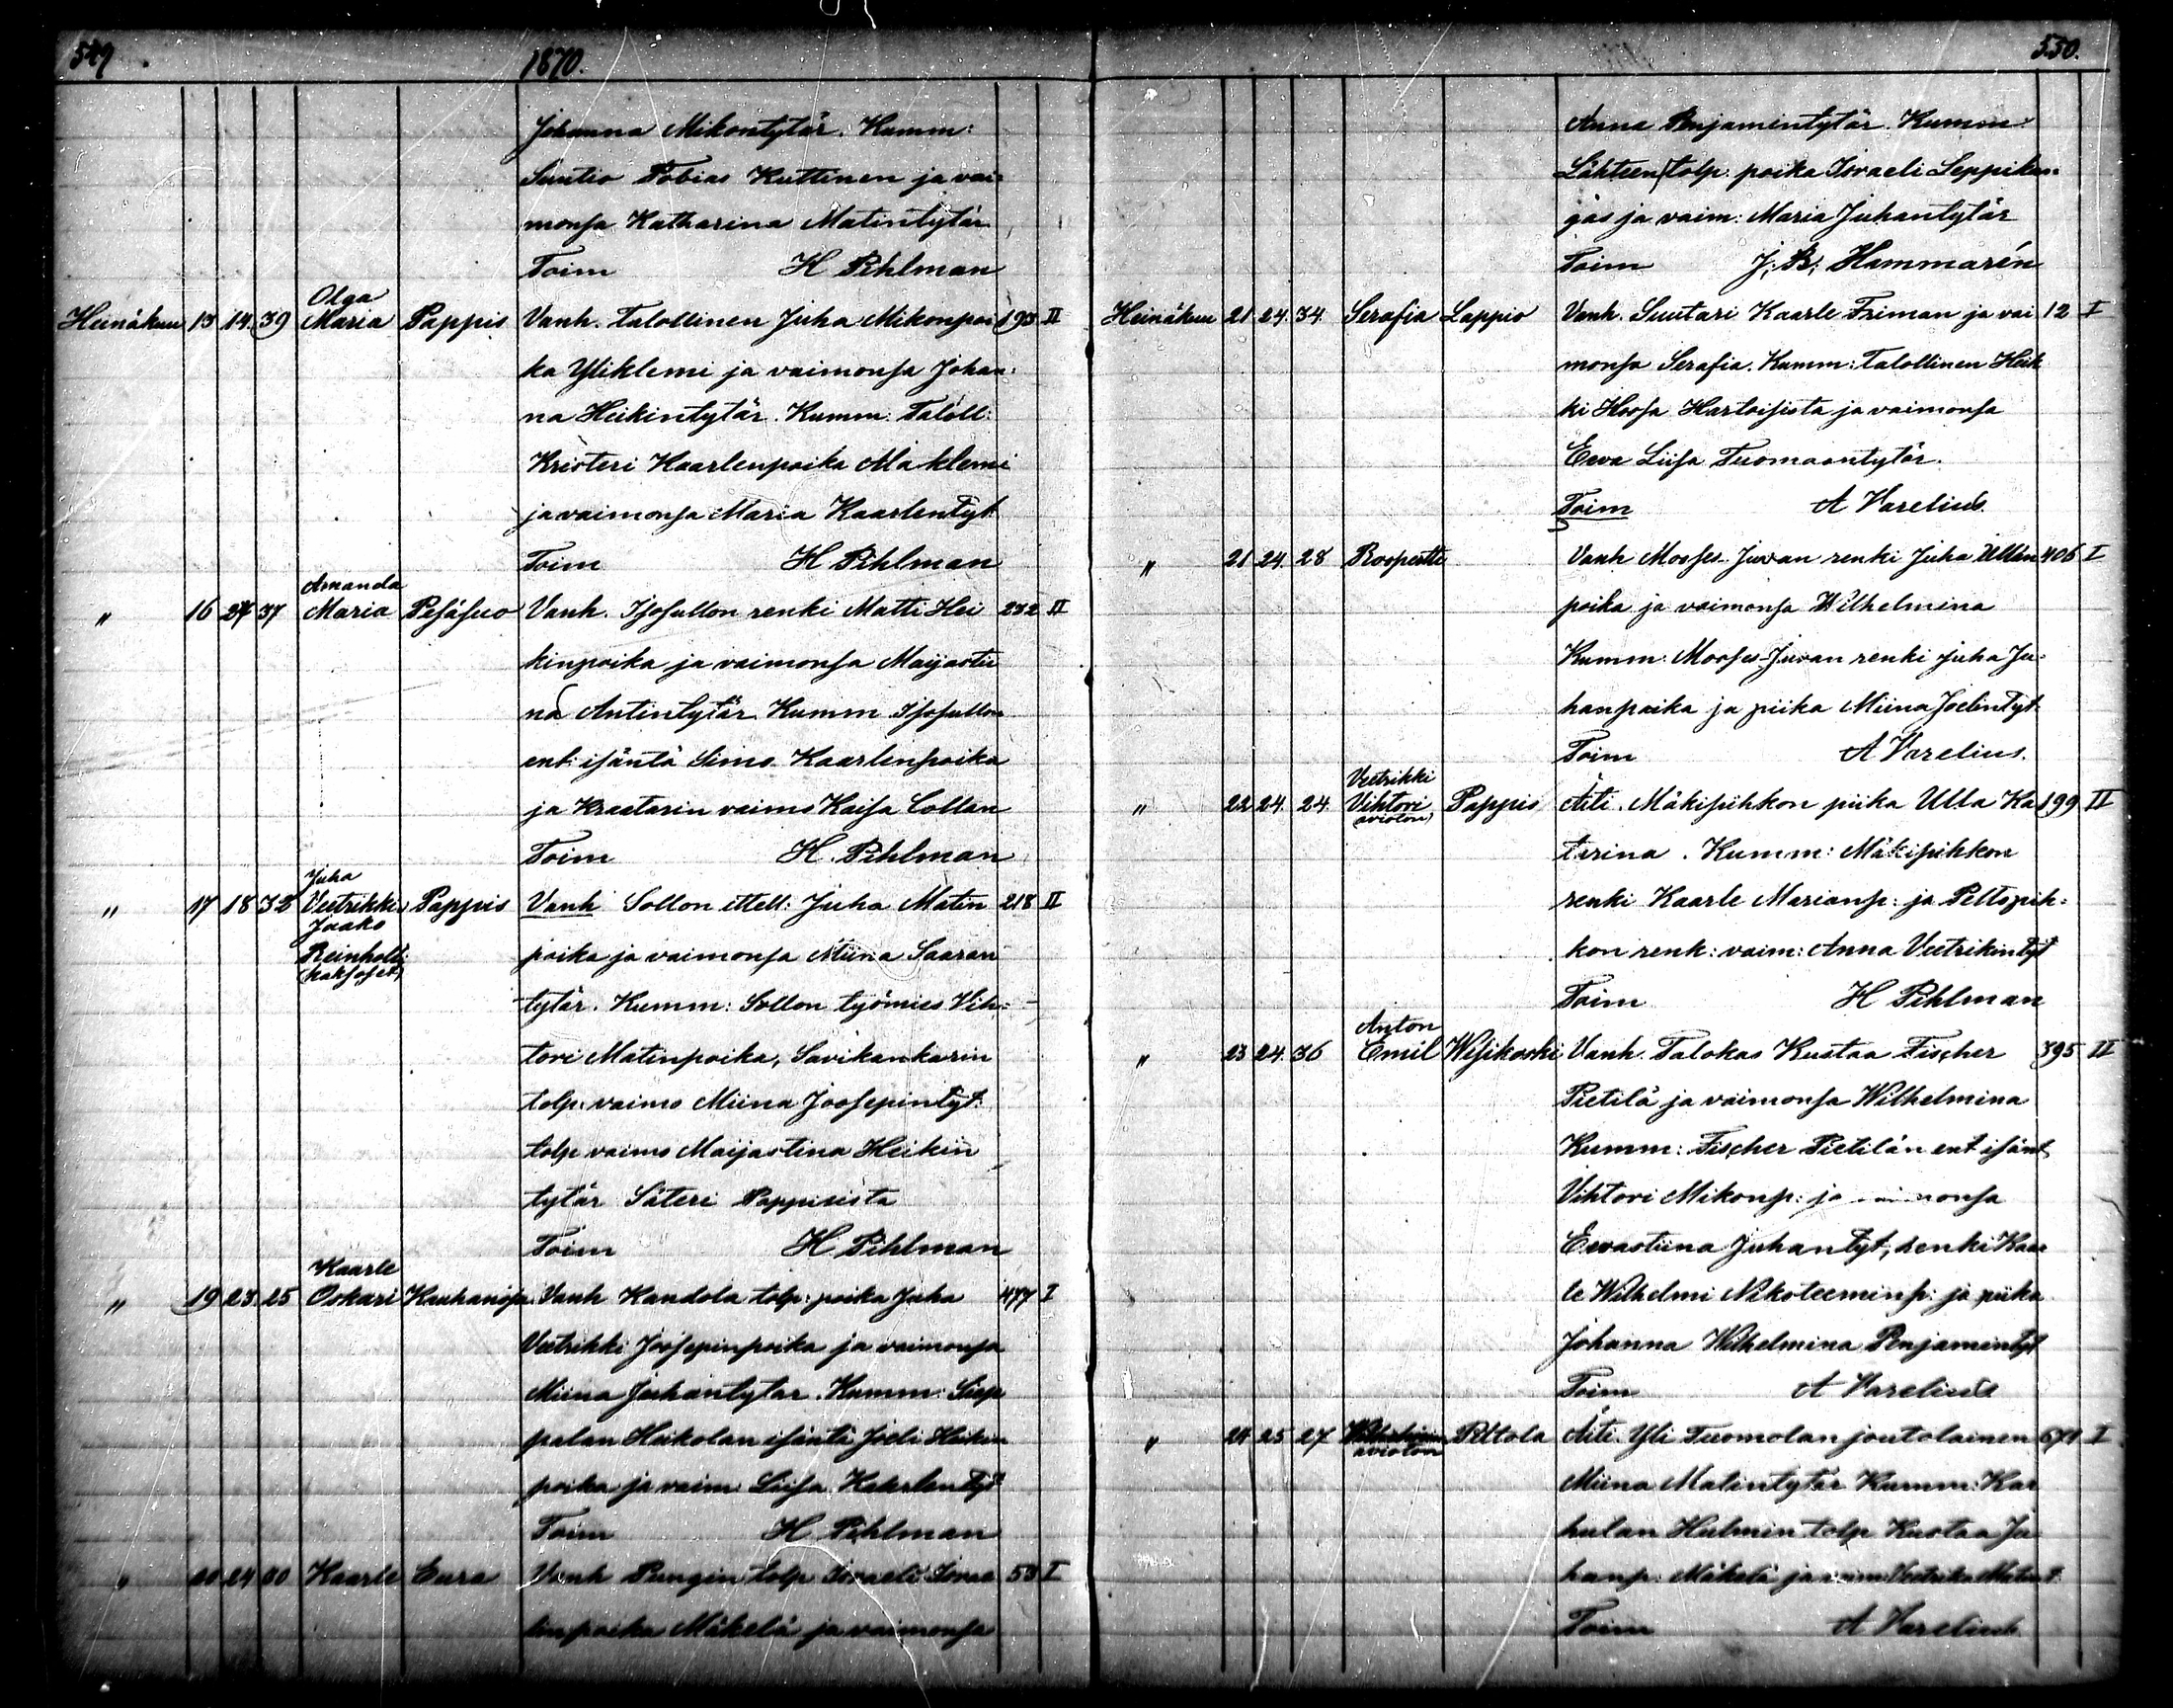 549
1870.
Johanna Mikontytär. Kumm:
Suutio Tobias Kuttinen ja vai=
monsa Katharina Matintytär
Toim H Pihlman
Olga
Heinäkuu 13 14. 39 Maria Pappis Vanh. Talollinen Juha Mikonpoi 193 II
ka Yliklemi ja vaimonsa Johan=
na Heikintytär. Kumm: Taloll:
Kristeri Kaarlenpoika Alaklemi
ja vaimonsa Maria Kaarlentyt.
Toim H Pihlman
Amanda
„ 16 24 37 Maria Pesäsuo Vanh. Isosullon renki Matti Hei 232 II
kinpoika ja vaimonsa Maijastii
na Antintytär Kumm Isosullon
ent: isäntä Simo Kaarlenpoika
ja Kraatarin vaimo Kaisa Collan
Toim H. Pihlman
Juha
„ 17 18 32 Veetrikki, Pappis Vanh Sollon ittell: Juha Matin 218 II
Jaako
Reinholt: poika ja vaimonsa Miina Saaran
(kaksoset)
tytär. Kumm: Sollon työmies Vih=
tori Matinpoika, Savikankarin
tolp. vaimo Miina Joosepintyt.
tolp vaimo Maijastina Heikin
tytär Säteri Pappisista
Toim H Pihlman
Kaarle
„ 19 23. 25 Oskari Kauhanoja Vanh Kandola tolp: poika Juha 477 I
Veetrikki Joosepinpoika ja vaimonsa
Miina Juhantytar. Kumm: Siep
palan Heikolan isäntä Joeli Heikin
poika ja vaim Liisa Kaarlentyt
Toim H Pihlman
„ 20 24 30 Kaarle Eura Vanh Pungin tolp Israeli Israe 53 I
linpoika Mäkelä ja vaimonsa
550.
Anna Benjamintytär. Kumm:
Lähteen tolp. poika Israeli Leppikan=
gas ja vaim: Maria Juhantytär
Toim J. B. Hammarén
Heinäkuu 21 24. 34. Serafia Lappio Vanh. Suutari Kaarle Friman ja vai 12 I
monsa Serafia. Kumm: Talollinen Heik
ki Hoosa Hartoisista ja vaimonsa
Eeva Liisa Tuomaantytär.
Toim A Varelius.
„ 21 24. 28 Roopertti Vanh Mooses Juvan renki Juha Ullan 406 I
poika ja vaimonsa Wilhelmina
Kumm: Mooses-Juvan renki Juha Ju=
hanpoika ja piika Miina Joelintyt.
Toim A Varelius.
Veetrikki
„ 22 24. 24. Vihtori Pappis Äiti. Mäkipihkon piika Ulla Ka 199 II
(avioton)
tarina. Kumm: Mäkipihkon
renki Kaarle Marianp: ja Peltopih=
kon renk: vaim: Anna Veetrikintyt
Toim H Pihlman
Anton
„ 23 24. 36 Emil Wesikoski Vanh. Talokas Kustaa Fischer 395 II
Pietilä ja vaimonsa Wilhelmina
Kumm: Fischer Pietilän ent isänt
Vihtori Mikonp: ja vaimonsa
Eevastiina Juhantyt, renki Kaar
le Wilhelmi Nikoteeminp: ja piika
Johanna Wilhelmina Benjamintyt
Toim A Varelius
„ 24 25 27 Peltola Äiti. Yli Tuomolan joutolainen 671 I
avioton
Miina Matintytär Kumm: Kar
hulan Hulmin tolp Kustaa Ju
hanp: Mäkelä ja vaim: Veetrika Matint.
Toim A Varelius.